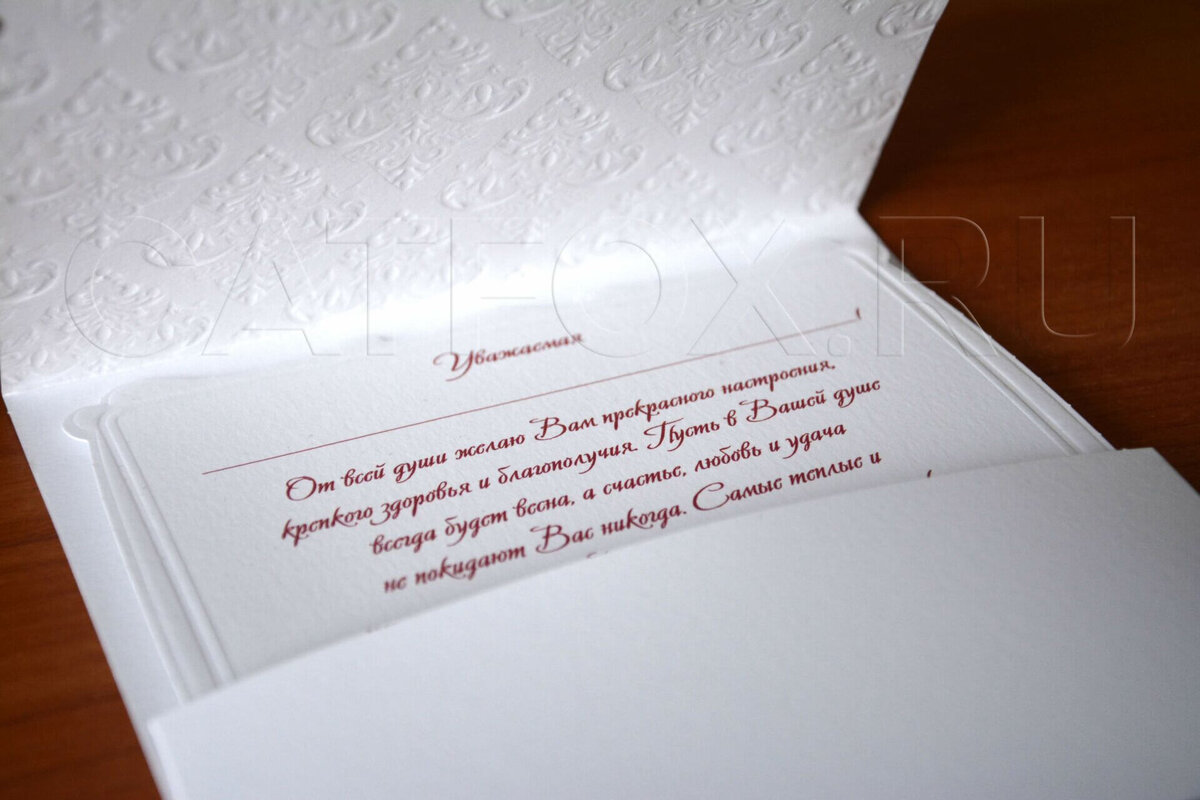 CATFOX.RU
Уважаемая
!
От всей души желаю Вам прекрасного настроения,
крепкого здоровья и благополучия. Пусть в Вашей душе
всегда будет весна, а счастье, любовь и удача
не покидают Вас никогда. Самые теплые и